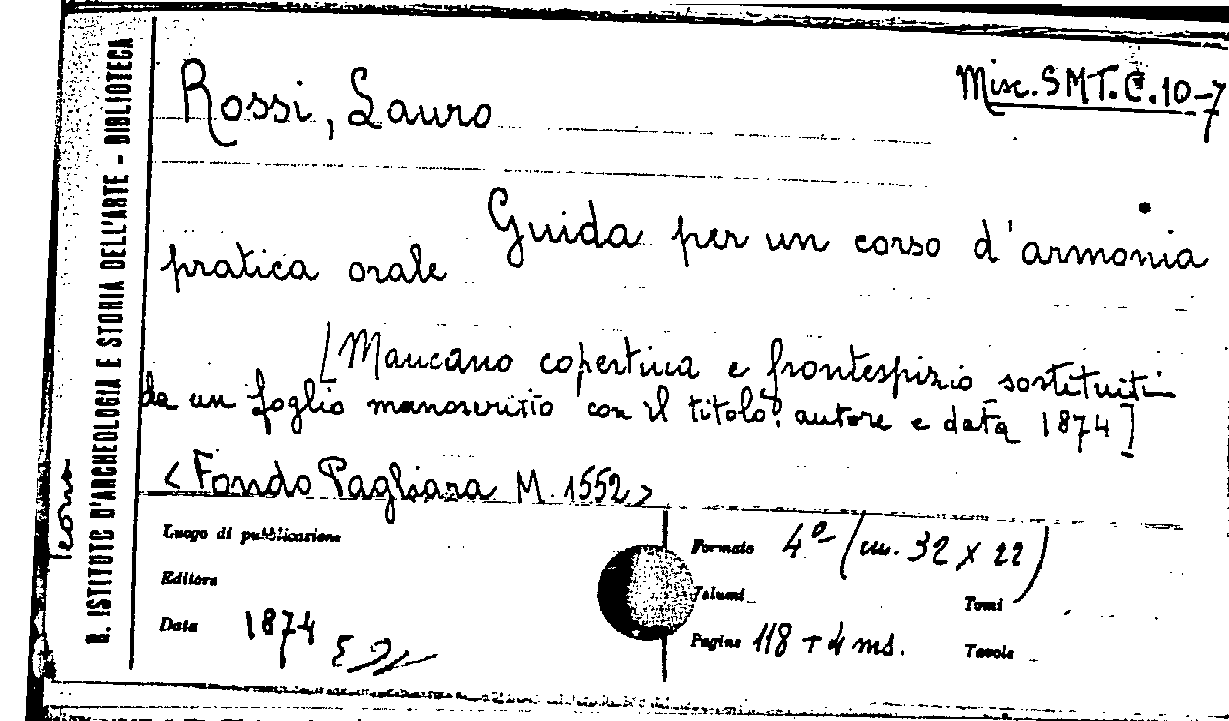 Rossi, Lauro
Misc. SMT. C. 10-7
Guida per un corso d'armonia
pratica orale
[Mancano copertina e frontespizio sostituiti
da un foglio manoscritto con il titolo, autore e data 1874]
<Fondo Pagliara M. 1552>
Luogo di pubblicazione
Editore
Data 1874
Formato 4º (cm. 32 x 22)
Volumi
Tomi
Pagine 118 + 4 ms.
Tavole
R. ISTITUTO D'ARCHEOLOGIA E STORIA DELL'ARTE - BIBLIOTECA